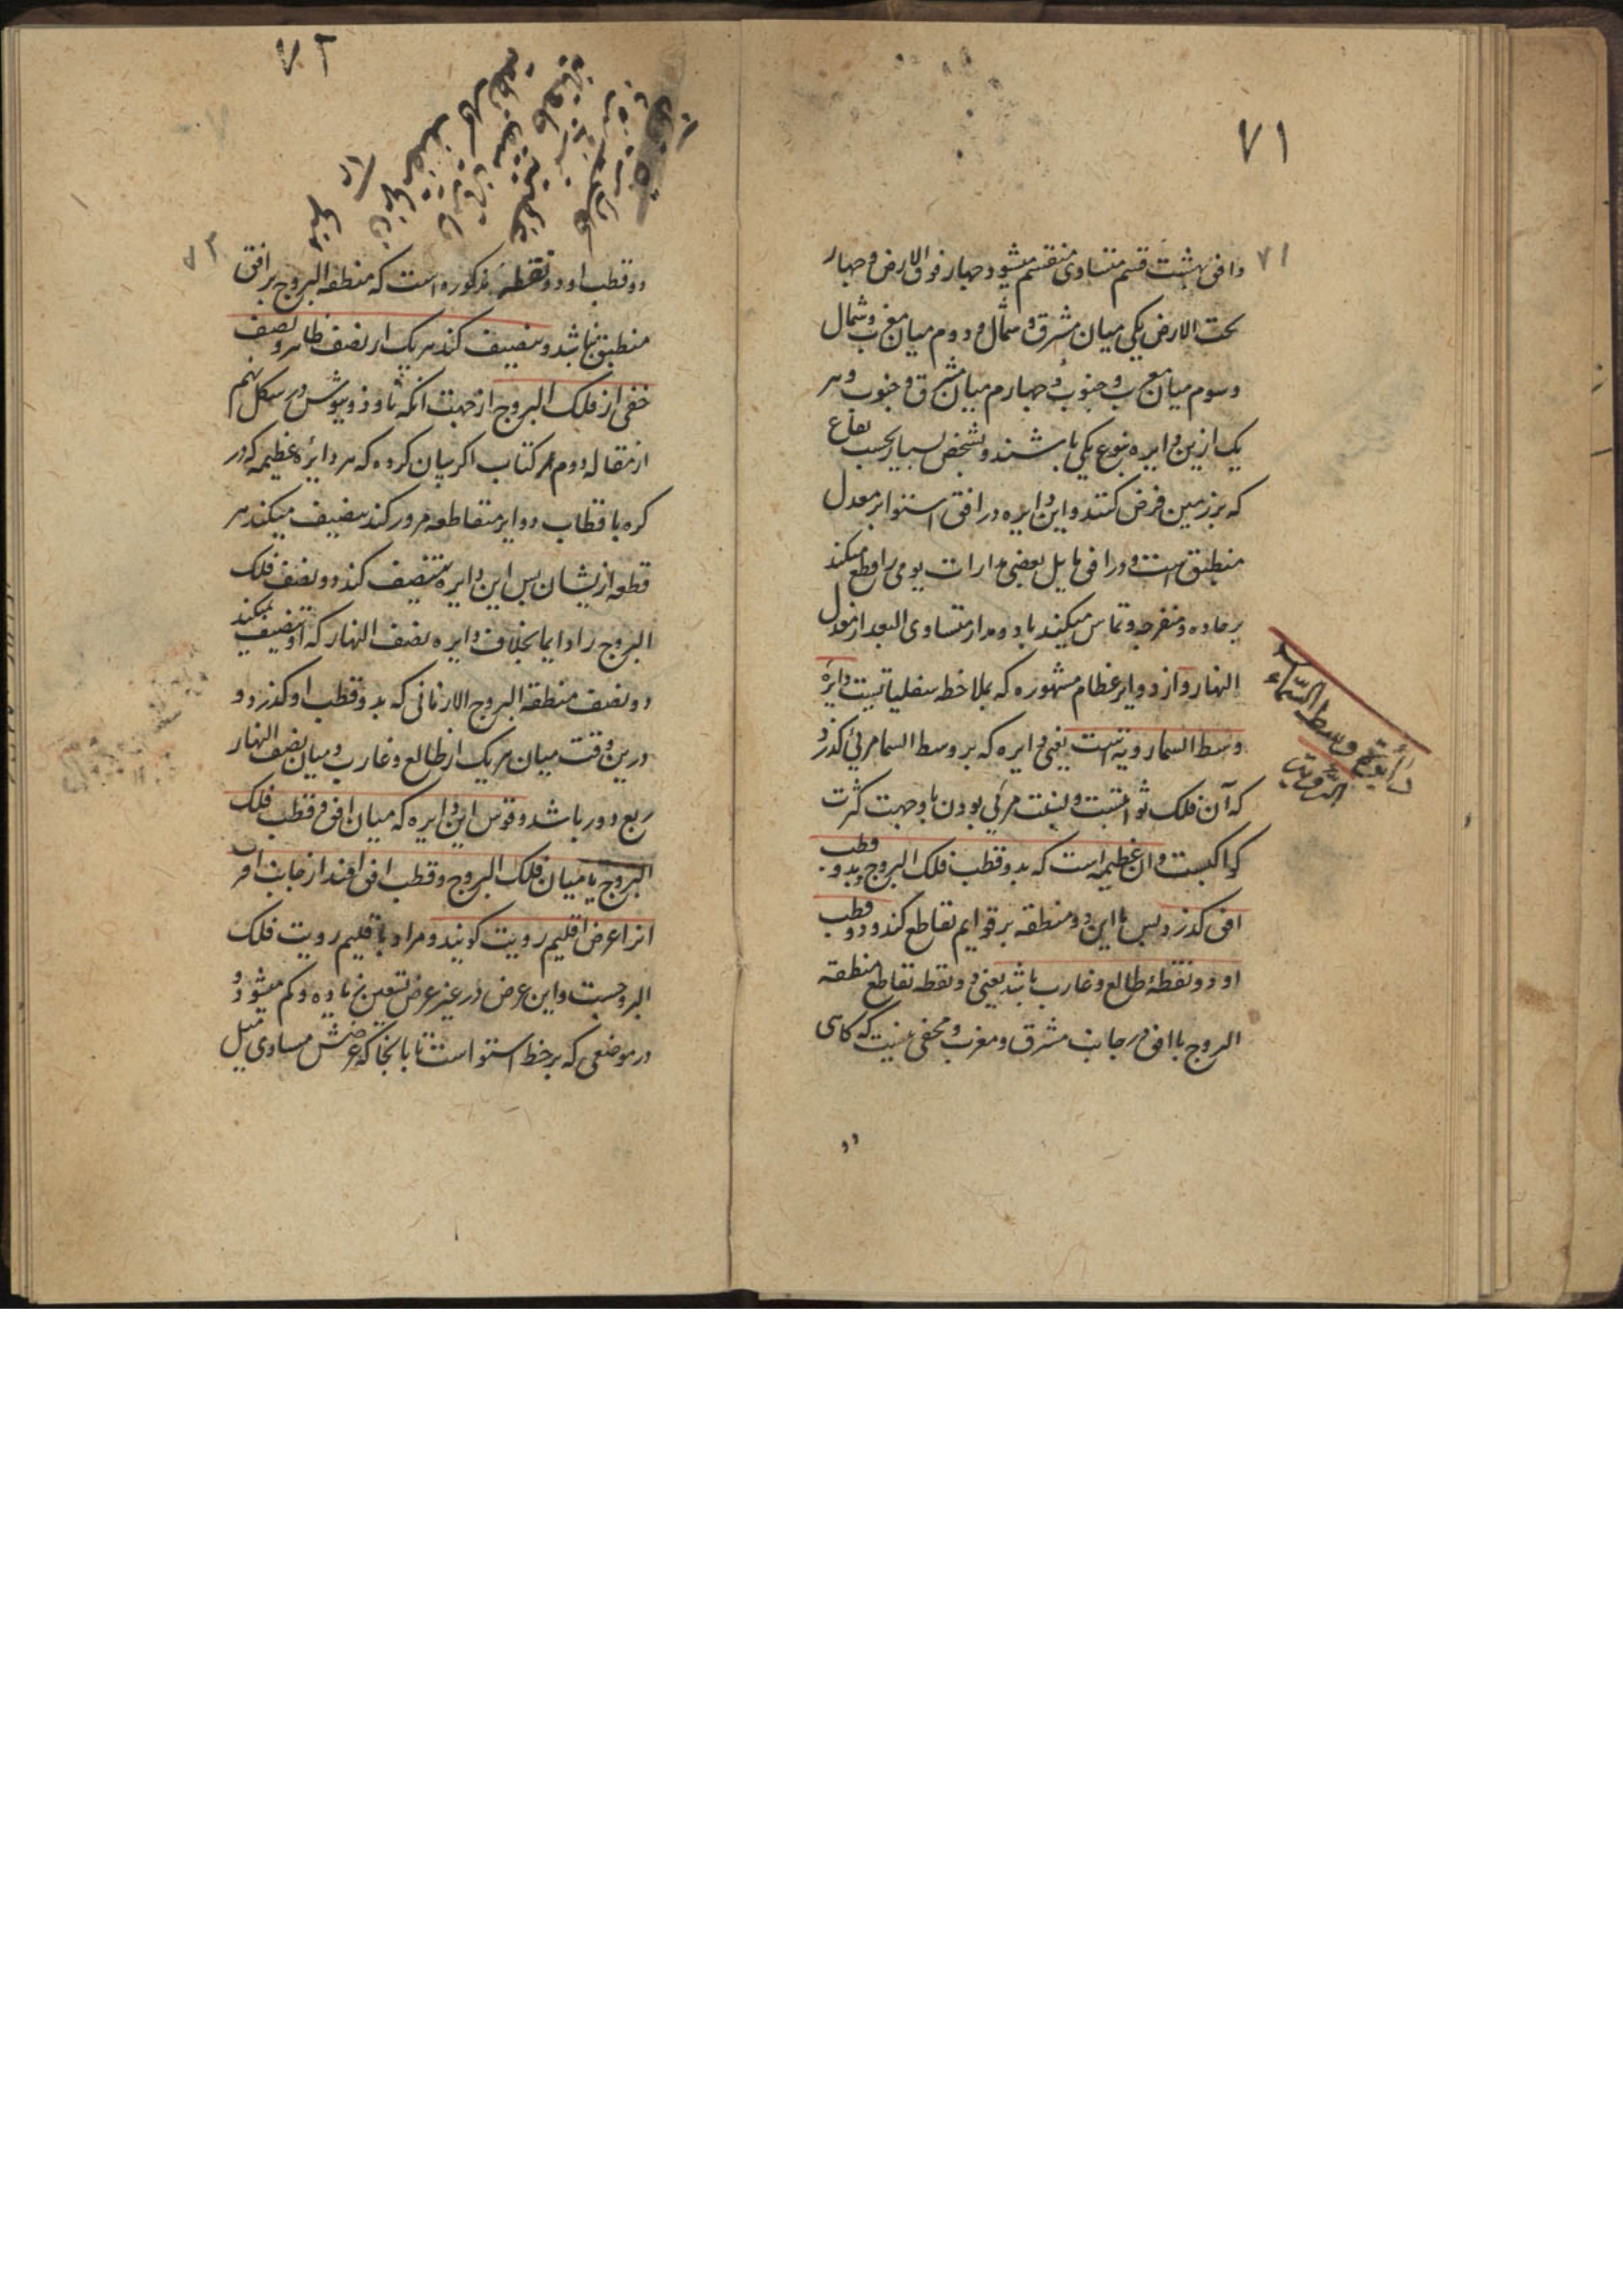 ۷۱
۷۱
وافق بهشت قسم متساوی منقسم میشود چهار فوق الارض و چهار
تحت الارض یکی میان مشرق و شمال و دوم میان مغرب و شمال
و سوم میان مغرب و جنوب و چهارم میان مشرق و جنوب و هر
یک ازین دایره بنوع یکی باشند و بشخص بسیار بحسب بقاع
که بر زمین فرض کنند و این دایره در افق استوا بر معدل
منطبق است و در افق مایل بعضی مدارات یومی را قطع میکند
بر حاده و منفرجه و تماس میکند با دو مدار متساوی البعد از معدل
النهار و از دوایر عظام مشهوره که بملاحظه سفلیاتیست دایره
وسط السما رویة است یعنی دایره که بر وسط السما مرئی کذرد
که آن فلک ثوابتست و بنسبت مرئی بودن باو جهت کثرت
کواکبست و ان عظیمه است که بدو قطب فلک البروج و بدو قطب
افق کذرد پس با این دو منطقه بر قوایم تقاطع کند و دو قطب
او دو نقطهٔ طالع و غارب باشد یعنی دو نقطه تقاطع منطقه
البروج با افق در جانب مشرق و مغرب و مخفی نیست که کاهی
دائرة وسط السماء
الرؤية
دو
۷۲
۷۲
دو قطب او دو نقطه مذکوره است که منطقه البروج بر افق
منطبق نباشد و تنصیف کند هر یک از نصف ظاهر و نصف
خفی از فلک البروج از جهت انکه ثاوذوسیوس در شکل نهم
از مقاله دوم از کتاب اکر بیان کرده که هر دایرهٔ عظیمه که در
کره باقطاب دوایر متقاطعه مرور کند تنصیف میکند هر
قطعه از یشان پس این دایره تنصیف کند دو نصف فلک
البروج را دایما بخلاف دایره نصف النهار که او تنصیف نمیکند
دو نصف منطقه البروج الا زمانی که بدو قطب او کذرد و
درین وقت میان هر یک از طالع و غارب و میان نصف النهار
ربع دور باشد و قوس این دایره که میان افق و قطب فلک
البروج یا میان فلک البروج و قطب افق افتد از جانب اقرب
انرا عرض اقلیم رویت کویند و مراد باقلیم رویت فلک
البروجست و این عرض در غیر عرض تسعین زیاده و کم میشود و
در موضعی که بر خط استوا است تا بانجا که عرضش مساوی میل